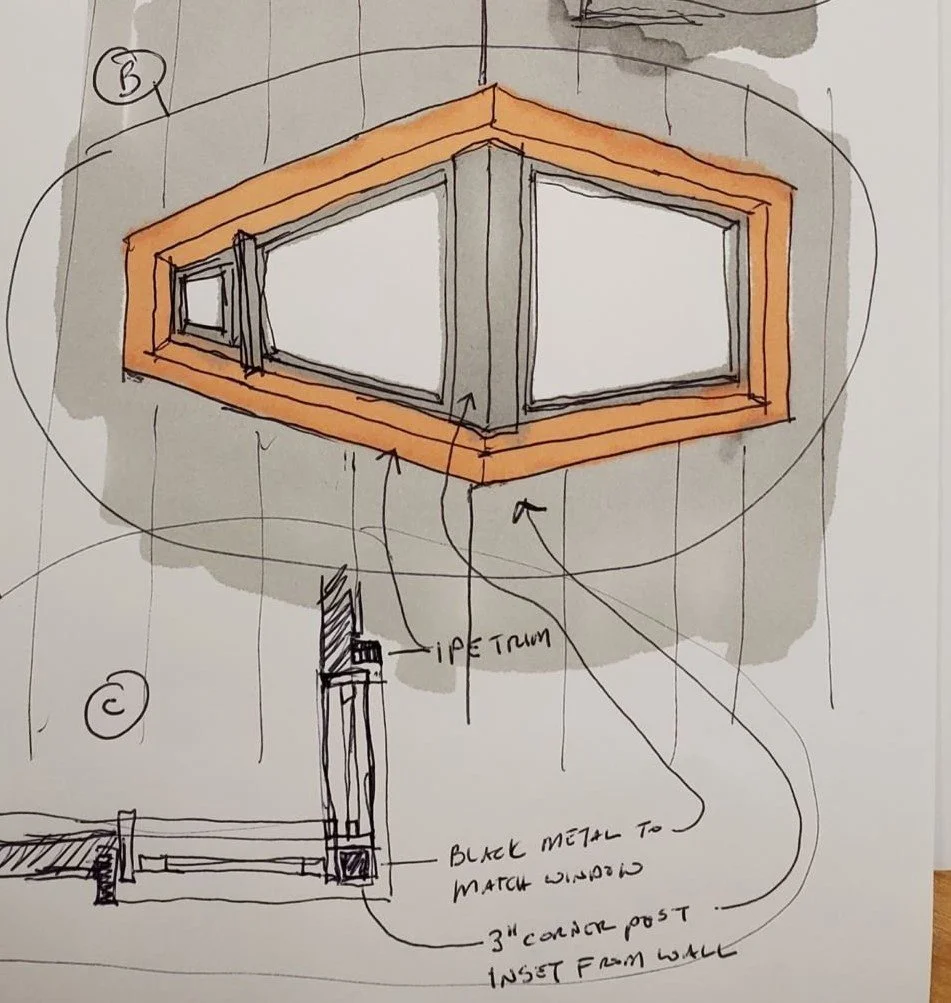 B
IPE TRIM
C
BLACK METAL TO
MATCH WINDOW
3" CORNER POST
INSET FROM WALL